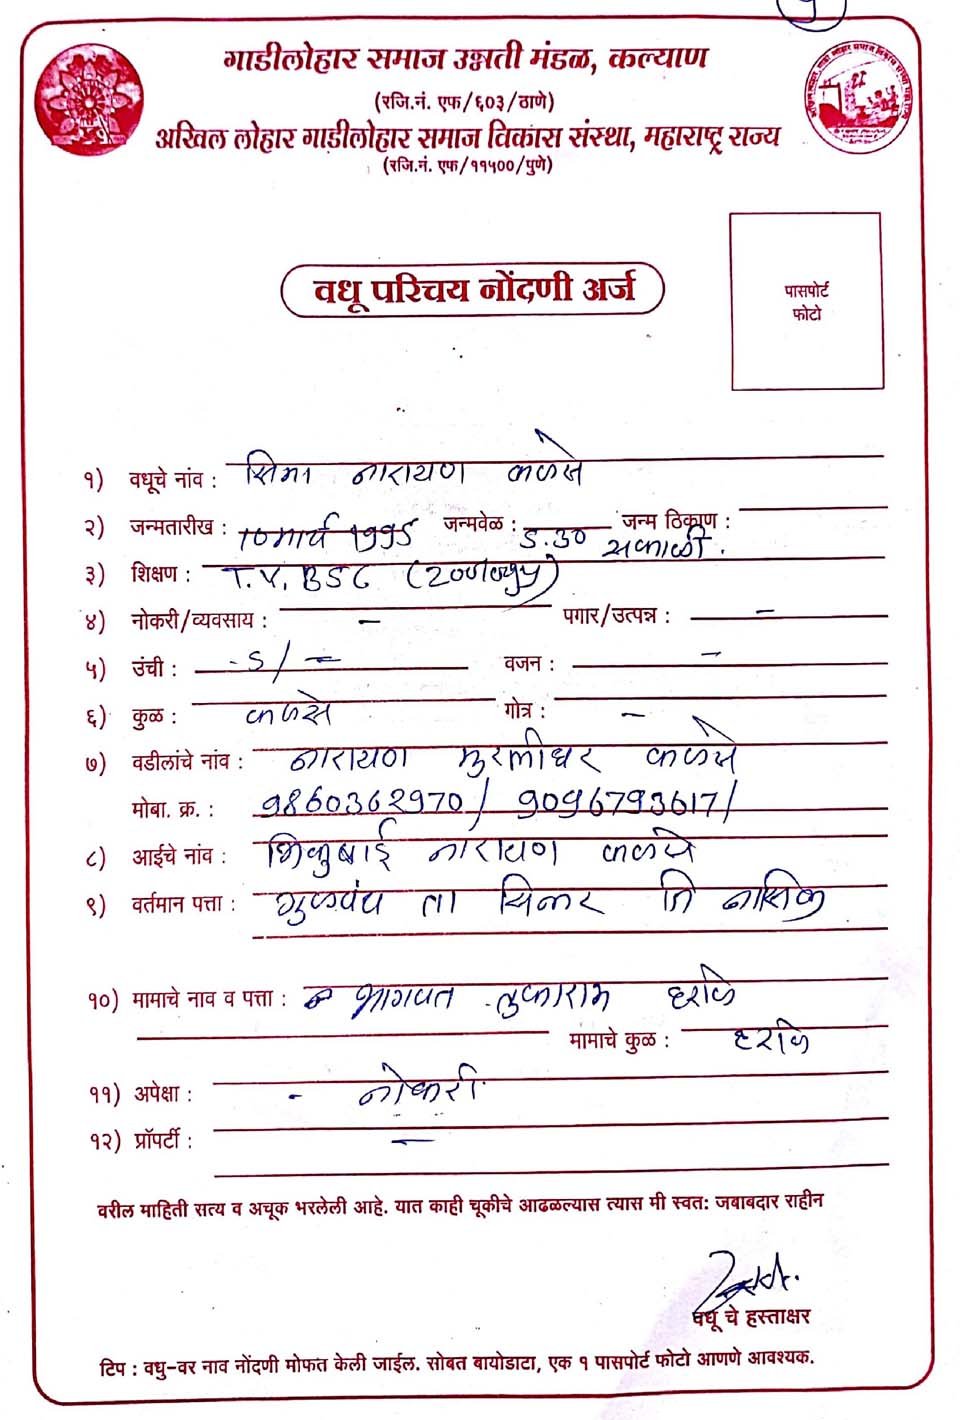 गाडीलोहार समाज उन्नती मंडळ, कल्याण
(रजि.नं. एफ/६०३/ठाणे)
अखिल लोहार गाडीलोहार समाज विकास संस्था, महाराष्ट्र राज्य
(रजि.नं. एफ/११५००/पुणे)
पासपोर्ट
फोटो
वधू परिचय नोंदणी अर्ज
१) वधूचे नांव : सिमा नारायण कळसे
२) जन्मतारीख : 10 मार्च 1995 जन्मवेळ : 5.30 सकाळी. जन्म ठिकाण :
३) शिक्षण : T.Y. BSC
४) नोकरी/व्यवसाय : - पगार/उत्पन्न : -
५) उंची : 5/- वजन : -
६) कुळ : कळसे गोत्र : -
७) वडीलांचे नांव : नारायण मुरलीधर कळसे
मोबा. क्र. : 9860362970/ 9096793617/
८) आईचे नांव : भिकुबाई नारायण कळसे
९) वर्तमान पत्ता : गुळवंच ता सिन्नर जि नासिक
१०) मामाचे नाव व पत्ता : भागवत तुकाराम
मामाचे कुळ :
११) अपेक्षा : - नोकरी
१२) प्रॉपर्टी : -
वरील माहिती सत्य व अचूक भरलेली आहे. यात काही चूकीचे आढळल्यास त्यास मी स्वत: जबाबदार राहीन
वधू चे हस्ताक्षर
टिप : वधु-वर नाव नोंदणी मोफत केली जाईल. सोबत बायोडाटा, एक १ पासपोर्ट फोटो आणणे आवश्यक.